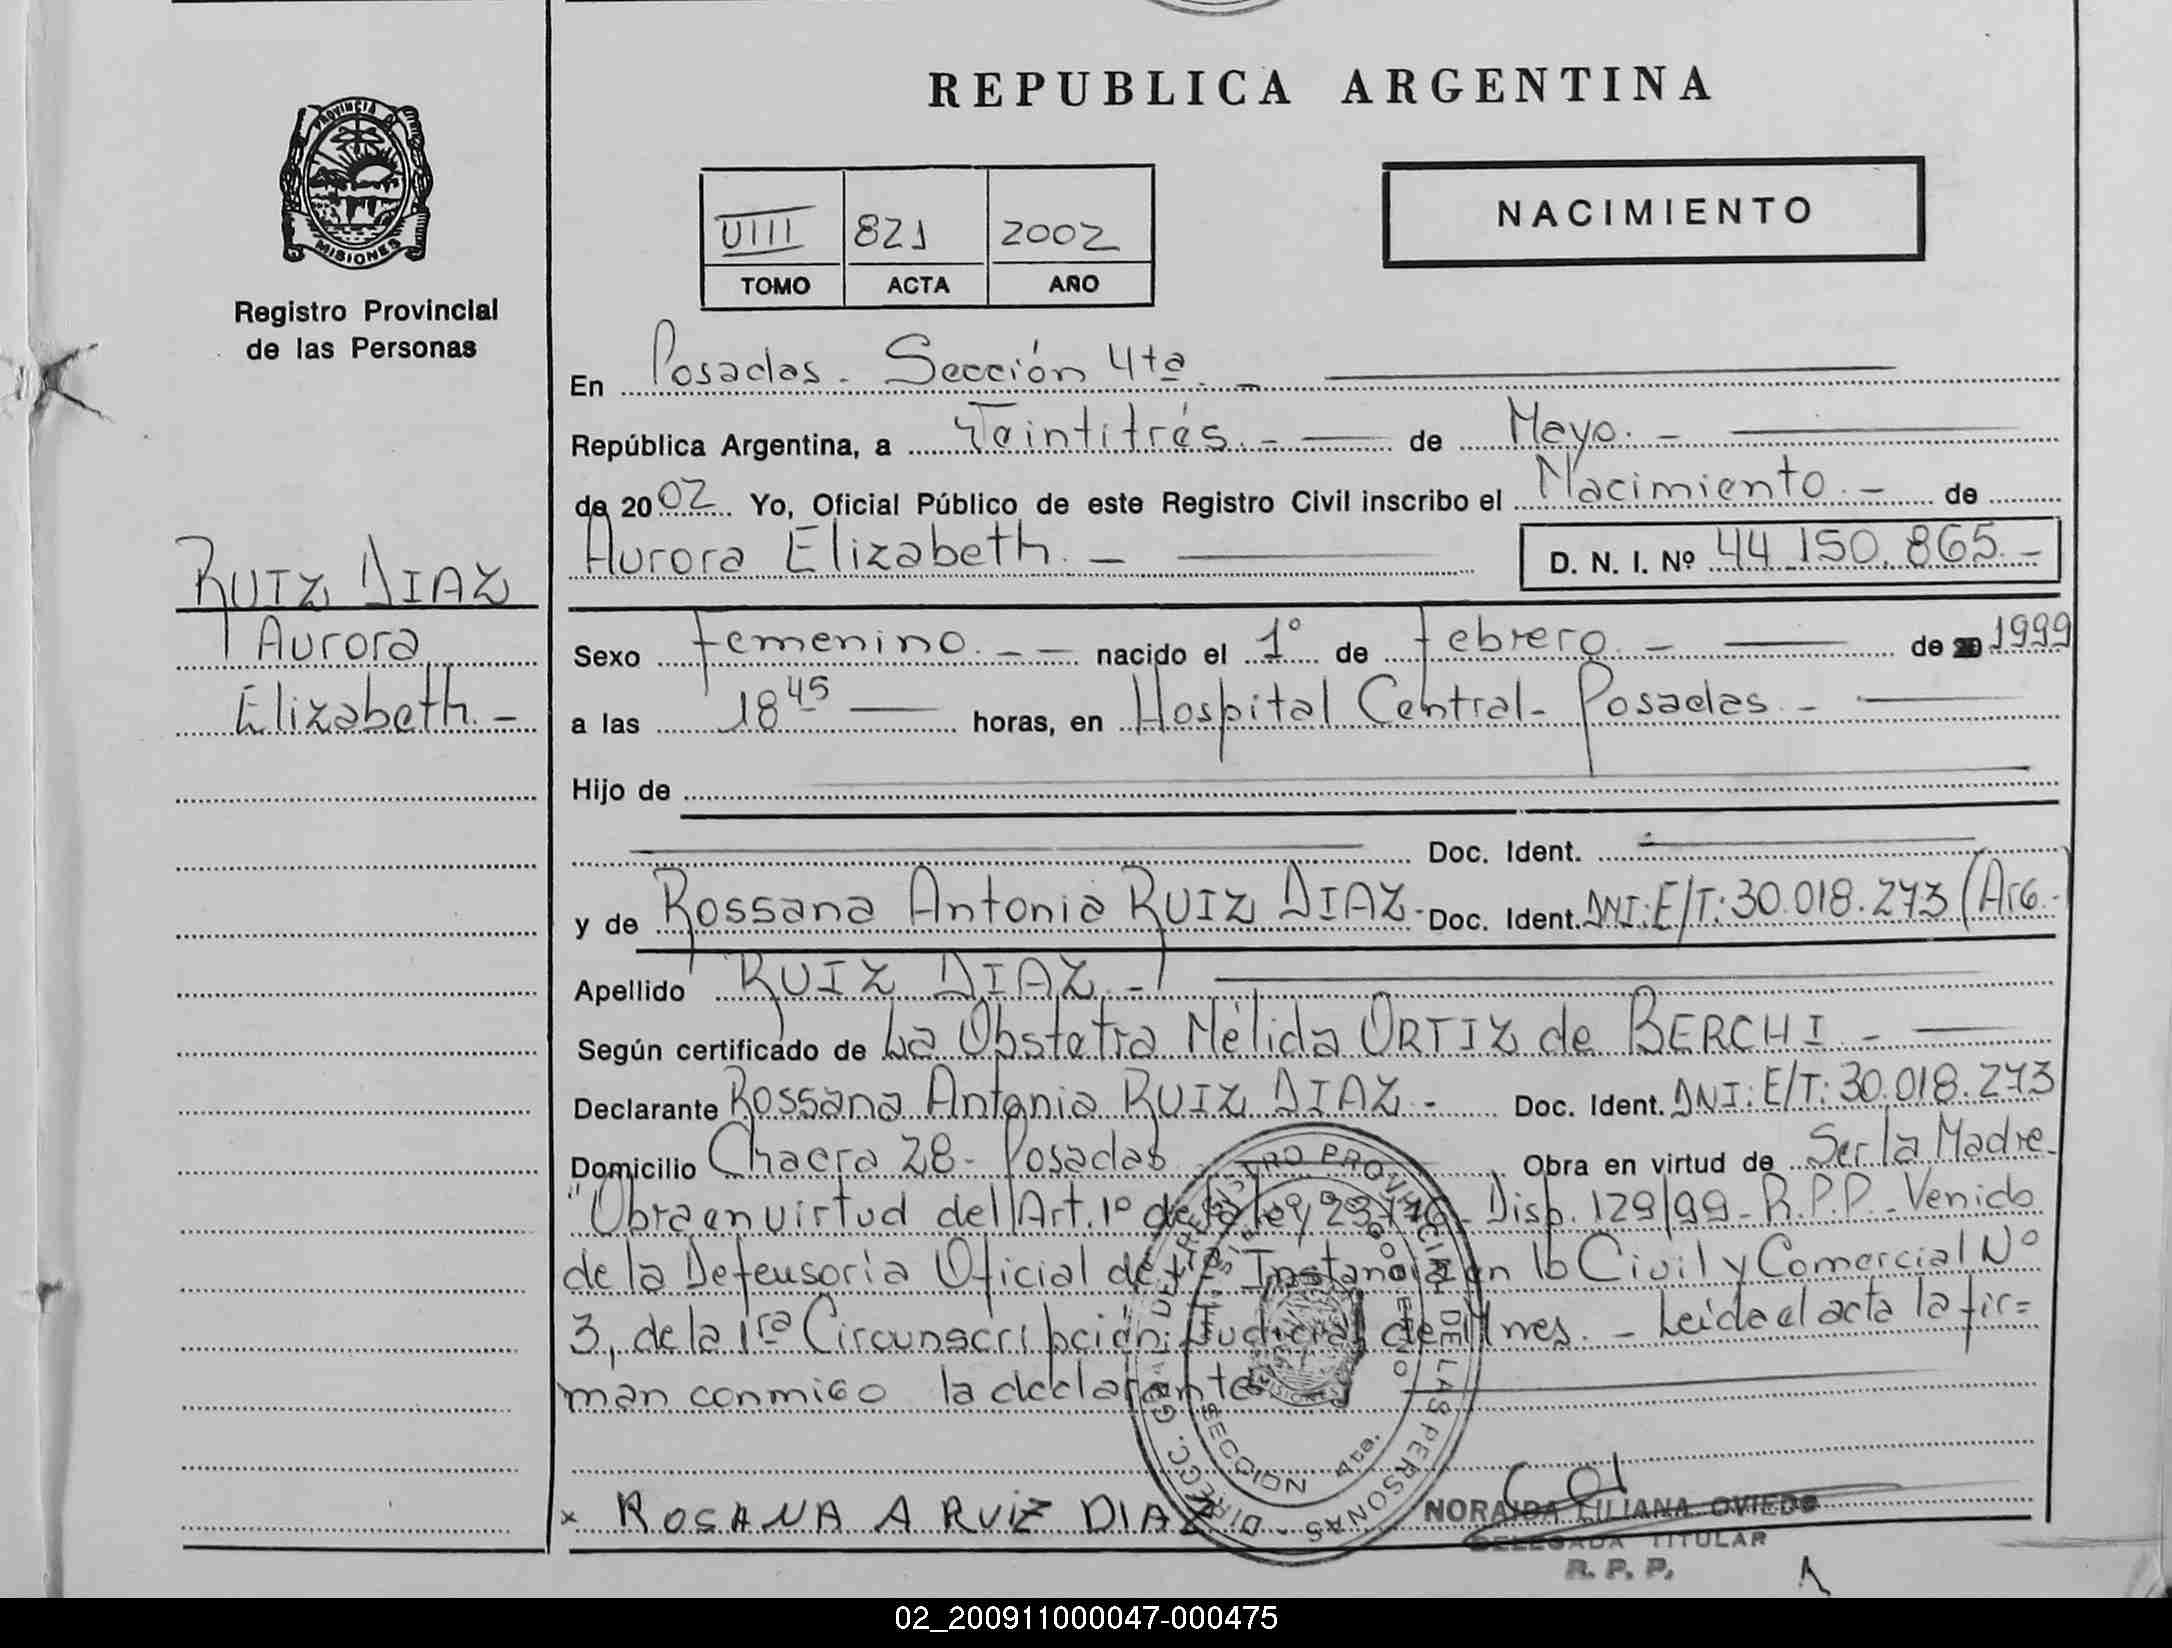 REPUBLICA ARGENTINA
PROVINCIA DE MISIONES
Registro Provincial
de las Personas
VIII 821 2002
TOMO ACTA AÑO
NACIMIENTO
En Posadas. Sección 4ta. -
República Argentina, a Veintitrés. - de Mayo. -
de 2002 Yo, Oficial Público de este Registro Civil inscribo el Nacimiento. - de
Aurora Elizabeth. - D. N. I. Nº 44.150.865. -
RUIZ DIAZ
Aurora
Elizabeth. -
Sexo Femenino. - - nacido el 1º de Febrero - de 1999
a las 18 45 horas, en Hospital Central - Posadas. -
Hijo de
Doc. Ident.
y de Rossana Antonia RUIZ DIAZ. Doc. Ident. DNI: E/T: 30.018.273 (Arg.-
Apellido RUIZ DIAZ. -
Según certificado de La Obstetra Nélida ORTIZ de BERCHI. -
Declarante Rossana Antonia RUIZ DIAZ. - Doc. Ident. DNI: E/T: 30.018.273
Domicilio Chacra 28 - Posadas Obra en virtud de Ser la Madre.
"Obra en virtud del Art. 1º de la ley 23776 - Disp. 129/99 - R.P.P. - Venido
de la Defensoría Oficial de Instancia en lo Civil y Comercial Nº
3, de la 1ra Circunscripción Judicial de Mnes. - Leida el acta la fir=
man conmigo la declarante
x ROSANA A RUIZ DIAZ
DIRECC. GRAL. DEL REGISTRO PROVINCIAL DE LAS PERSONAS
SECCION 4ta.
NORAIDA LILIANA OVIEDO
DELEGADA TITULAR
R. P. P.
02_200911000047-000475